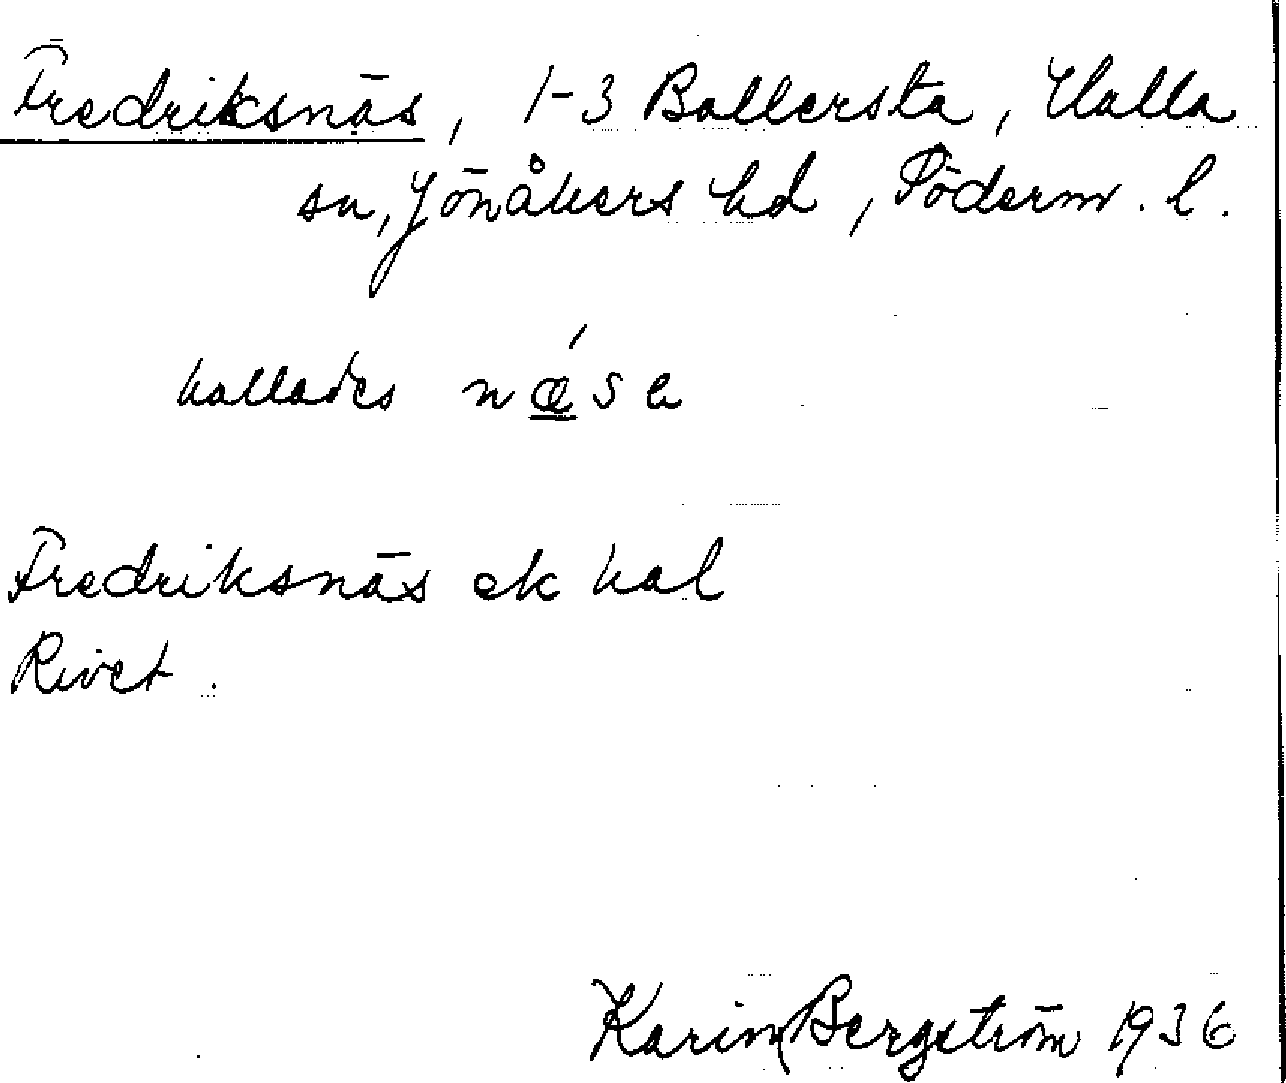 Fredriksnäs, 1-3 Ballersta, Halla
sn, Jönåkers hd, Söderm. l.
kallades næ´sə
Fredriksnäs ek kal
Rivet.
Karin Bergström 1936